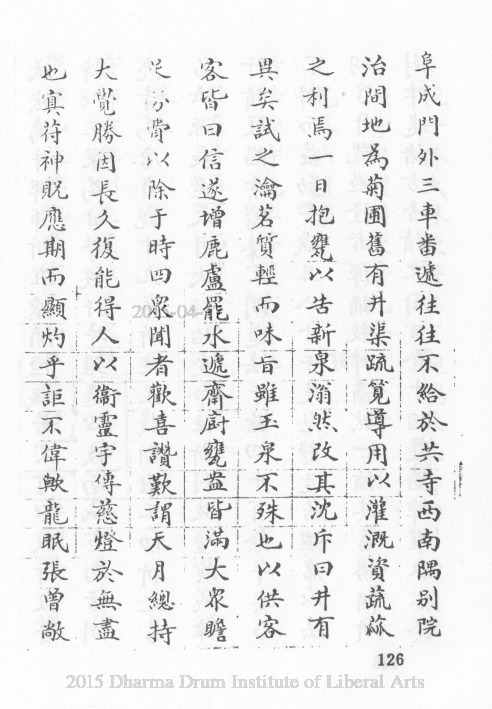 阜成門外三車畨遞往往不給於共寺西南隅别院
治閒地為菊圃舊有井渠疏筧導用以灌溉資蔬蓏
之利焉一日抱甕以告新泉滃然改其沈斥曰井有
異矣試之瀹茗質輕而味旨雖玉泉不殊也以供客
客皆曰信遂增鹿盧罷水遞齋廚甕盎皆滿大眾瞻
足芻費以除于時四眾聞者歡喜讚歎謂天月總持
大覺勝因長久復能得人以衞靈宇傳慈燈於無盡
也寘符神貺應期而顯灼乎詎不偉歟龍眠張曾敞
126
2015 Dharma Drum Institute of Liberal Arts